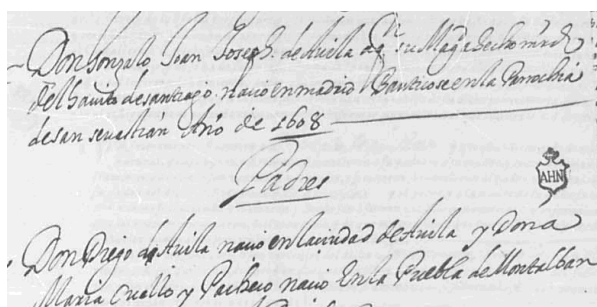 Don Gonzalo Joan Joseph. de Avila aqn. su Magd. a hecho mrd.
del havito de santiago. nacio en madrid Bautiçose en la Parrochia
de san sevastian Año de 1608
Padres
AHN
Don Diego de Avila nacio en la ciudad de Avila y Dona
Maria Cuello y Pacheco nacio En la Puebla de Montalban